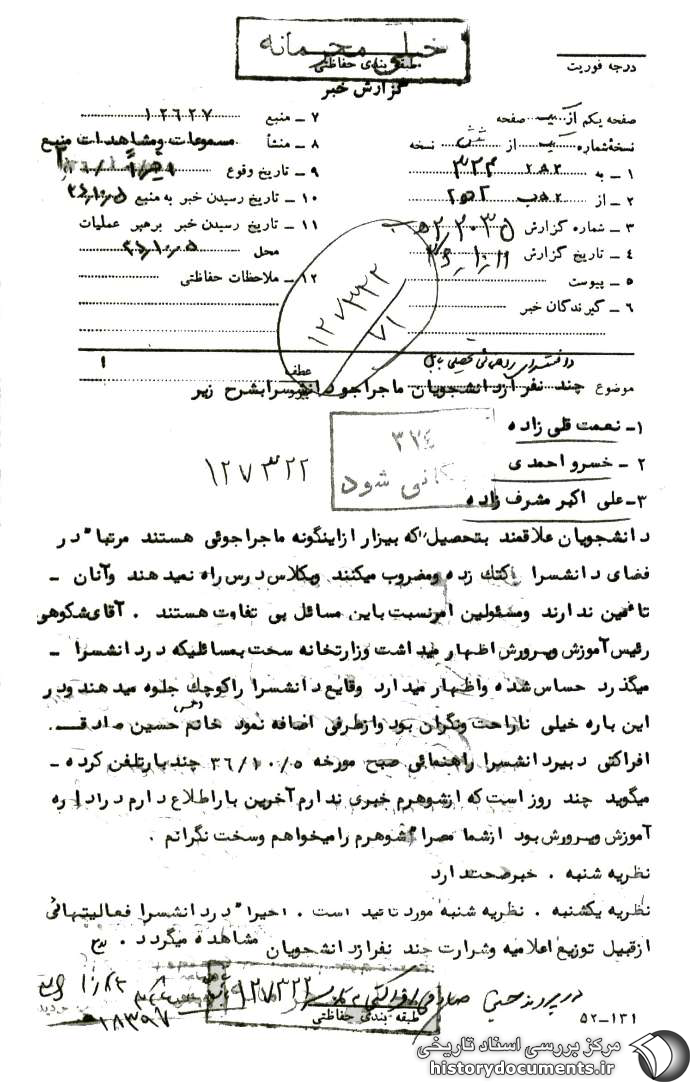 خیلی محرمانه
طبقه بندی حفاظتی
گزارش خبر
درجه فوریت
صفحه یکم از یک صفحه
نسخه شماره یک از شش نسخه
۱ ـ به ۳۲۴
۲ ـ از
۳ ـ شماره گزارش
۴ ـ تاریخ گزارش
۵ ـ پیوست
۶ ـ گیرندگان خبر
۷ ـ منبع ۱۲۶۲۷
۸ ـ منشأ مسموعات ومشاهدات منبع
۹ ـ تاریخ وقوع
۱۰ ـ تاریخ رسیدن خبر به منبع
۱۱ ـ تاریخ رسیدن خبر برهبر عملیات
محل
۱۲ ـ ملاحظات حفاظتی
۱۲۷۳۲۲
۷۱
دانشسرای راهنمائی تحصیلی بابل
عطف
موضوع چند نفر از دانشجویان ماجراجو دانشسرا بشرح زیر
۱ـ نعمت قلی زاده
۲ ـ خسرو احمدی
۳ـ علی اکبر مشرف زاده
۳۷۴
شود
۱۲۷۳۲۲
دانشجویان علاقمند بتحصیل که بیزار ازاینگونه ماجراجوئی هستند مرتباً در
فضای دانشسرا کتک زده ومضروب میکنند وبکلاس درس راه نمیدهند وآنان ـ
تأمین ندارند ومسئولین امرنسبت باین مسائل بی تفاوت هستند . آقای شکوهی
رئیس آموزش وپرورش اظهار میداشت وزارتخانه سخت بمسائلیکه در دانشسرا ـ
میگذرد حساس شده واظهار میدارد وقایع دانشسرا راکوچک جلوه میدهند ودر
این باره خیلی ناراحت ونگران بود وازطرفی اضافه نمود خانم حسین صادقـ
افراکتی دبیردانشسرا راهنمائی صبح مورخه ۳۶/۱۰/۵ چند بارتلفن کرده ـ
میگوید چند روز است که ازشوهرم خبری ندارم آخرین باراطلاع دارم دراداره
آموزش وپرورش بود ازشما مصراً شوهرم رامیخواهم وسخت نگرانم .
نظریه شنبه . خبرصحت دارد
نظریه یکشنبه . نظریه شنبه مورد تائید است . اخیراً در دانشسرا فعالیتهائی
ازقبیل توزیع اعلامیه وشرارت چند نفرازدانشجویان مشاهده میگردد .
در پرونده حسین صادقی افراکتی
۱۲۷۳۲۲
طبقه بندی حفاظتی
۱۸۳۹۷
۵۲ـ۱۳۱
مرکز بررسی اسناد تاریخی
historydocuments.ir